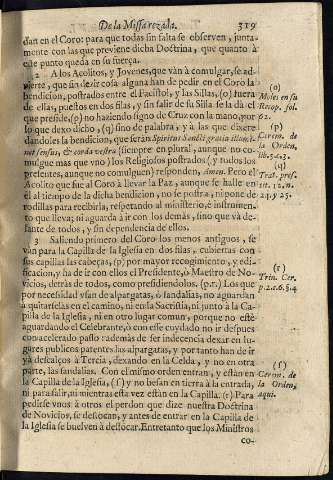 De la Missa rezada. 319
dan en el Coro: para que todas sin falta se observen, junta-
mente con las que previene dicha Doctrina, que quanto à
este punto queda en su fuerça.
2 A los Acolitos, y Jovenes, que vàn à comulgar, se ad-
vierte, que sin dezir cosa alguna han de pedir en el Coro la
bendicion, postrados entre el Facistol, y las Sillas, (o) fuera
de ellas, puestos en dos filas, y sin salir de su Silla se la dà el
que preside, (p) no haziendo signo de Cruz con la mano, por
lo que dexo dicho, (q) sino de palabra; y à las que dixere
dandoles la bendicion, que seràn Spiritus Sancti gratia illumi-
net sensus, & corda vestra (siempre en plural, aunque no co-
mulgue mas que vno) los Religiosos postrados (y todos los
presentes, aunque no comulguen) responden, Amen. Pero el
Acolito que fue al Coro à llevar la Paz, aunque se halle en
èl al tiempo de la dicha bendicion, no se postra, ni pone de
rodillas para recibirla, respetando al ministerio, è instrumen-
to que lleva; ni aguarda à ir con los demàs, sino que và de-
lante de todos, y sin dependencia de ellos.
3 Saliendo primero del Coro los menos antiguos, se
vàn para la Capilla de la Iglesia en dos filas, cubiertas con
sus capillas las cabeças, (p) por mayor recogimiento, y edi-
ficacion, y ha de ir con ellos el Presidente, ò Maestro de No-
vicios, detràs de todos, como presidiendolos. (p.r.) Los que
por necessidad vsan de alpargatas, ò sandalias, no aguardan
à quitarselas en el camino, ni en la Sacristia, ni junto à la Ca-
pilla de la Iglesia, ni en otro lugar comun, porque no estè
aguardando el Celebrante, ò con esse cuydado no ir despues
con acelerado passo: ademàs de ser indecencia dexar en lu-
gares publicos patentes las alpargatas, y por tanto han de ir
yà descalços à Tercia, dexando en la Celda, y no en otra
parte, las sandalias. Con el mismo orden entran, y estàn en
la Capilla de la Iglesia, (s) y no besan en tierra à la entrada,
ni para salir, ni mientras esta vez estàn en la Capilla. (r) Para
pedirse vnos à otros el perdon que dize nuestra Doctrina
de Novicios, se desfocan, y antes de entrar en la Capilla de
la Iglesia se buelven à desfocar. Entretanto que los Ministros
co-
(o)
Moles en su
62.
(p)
Cerem. de
la Orden,
(q)
Trat. pref.
24. y 25.
(r)
Trin. Cer.
(s)
Cerem. de
la Orden,
aqui.